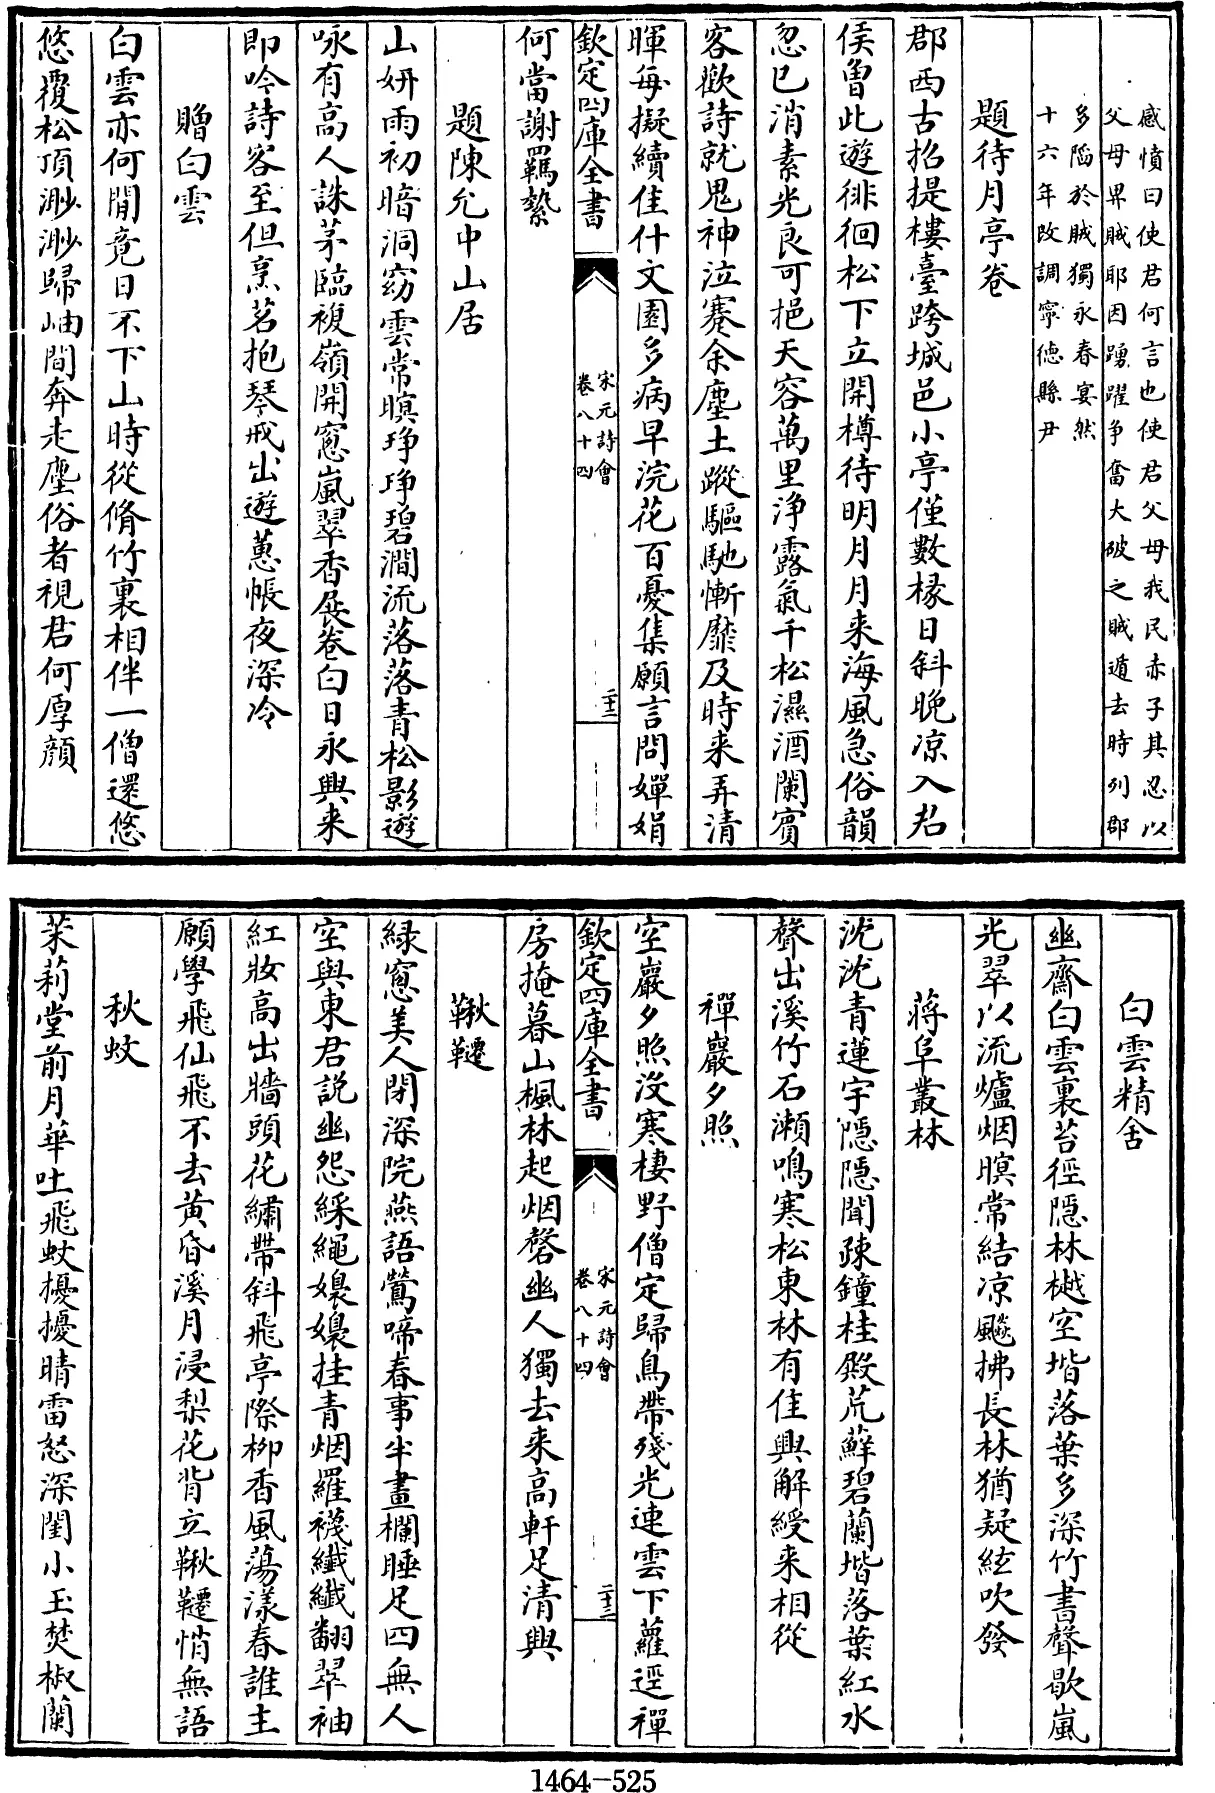 感憤曰使君何言也使君父母我民赤子其忍以
父母畀賊耶因踴躍争奮大破之賊遁去時列郡
多陷於賊獨永春宴然
十六年改調寧徳縣尹
題待月亭卷
郡西古招提樓臺跨城邑小亭僅數椽日斜晚凉入君
侯曽此遊徘徊松下立開樽待明月月来海風急俗韻
忽已消素光良可挹天容萬里浄露氣千松濕酒闌賓
客歡詩就鬼神泣蹇余塵土蹤驅馳慚靡及時来弄清
暉每擬續佳什文園多病早浣花百憂集願言問嬋娟
欽定四庫全書
宋元詩會
卷八十四
二十二
何當謝羈縶
題陳允中山居
山妍雨初暗洞窈雲常暝琤琤碧澗流落落青松影遊
咏有高人誅茅臨複嶺開窓嵐翠香展卷白日永興来
即吟詩客至但烹茗抱琴戒出遊蕙帳夜深冷
贈白雲
白雲亦何閒竟日不下山時從脩竹裏相伴一僧還悠
悠覆松頂渺渺歸岫間奔走塵俗者視君何厚顔
白雲精舍
幽齋白雲裏苔徑隱林樾空堦落葉多深竹書聲歇嵐
光翠以流爐烟暝常結凉飈拂長林猶疑絃吹發
蔣阜叢林
沈沈青蓮宇隠隠聞疎鐘桂殿荒蘚碧蘭堦落葉紅水
聲出溪竹石瀨鳴寒松東林有佳興解綬来相從
禪巖夕照
空巖夕照沒寒棲野僧定歸鳥帶殘光連雲下蘿逕禪
欽定四庫全書
宋元詩會
卷八十四
二十三
房掩暮山楓林起烟磬幽人獨去来高軒足清興
鞦韆
緑窓美人閉深院燕語鶯啼春事半畫欄睡足四無人
空與東君説幽怨綵繩嫋嫋挂青烟羅襪纎纎翻翠袖
紅妝高出牆頭花繡帶斜飛亭際柳香風蕩漾春誰主
願學飛仙飛不去黄昏溪月浸梨花背立鞦韆悄無語
秋蚊
茉莉堂前月華吐飛蚊擾擾晴雷怒深閨小玉焚椒蘭
1464-525